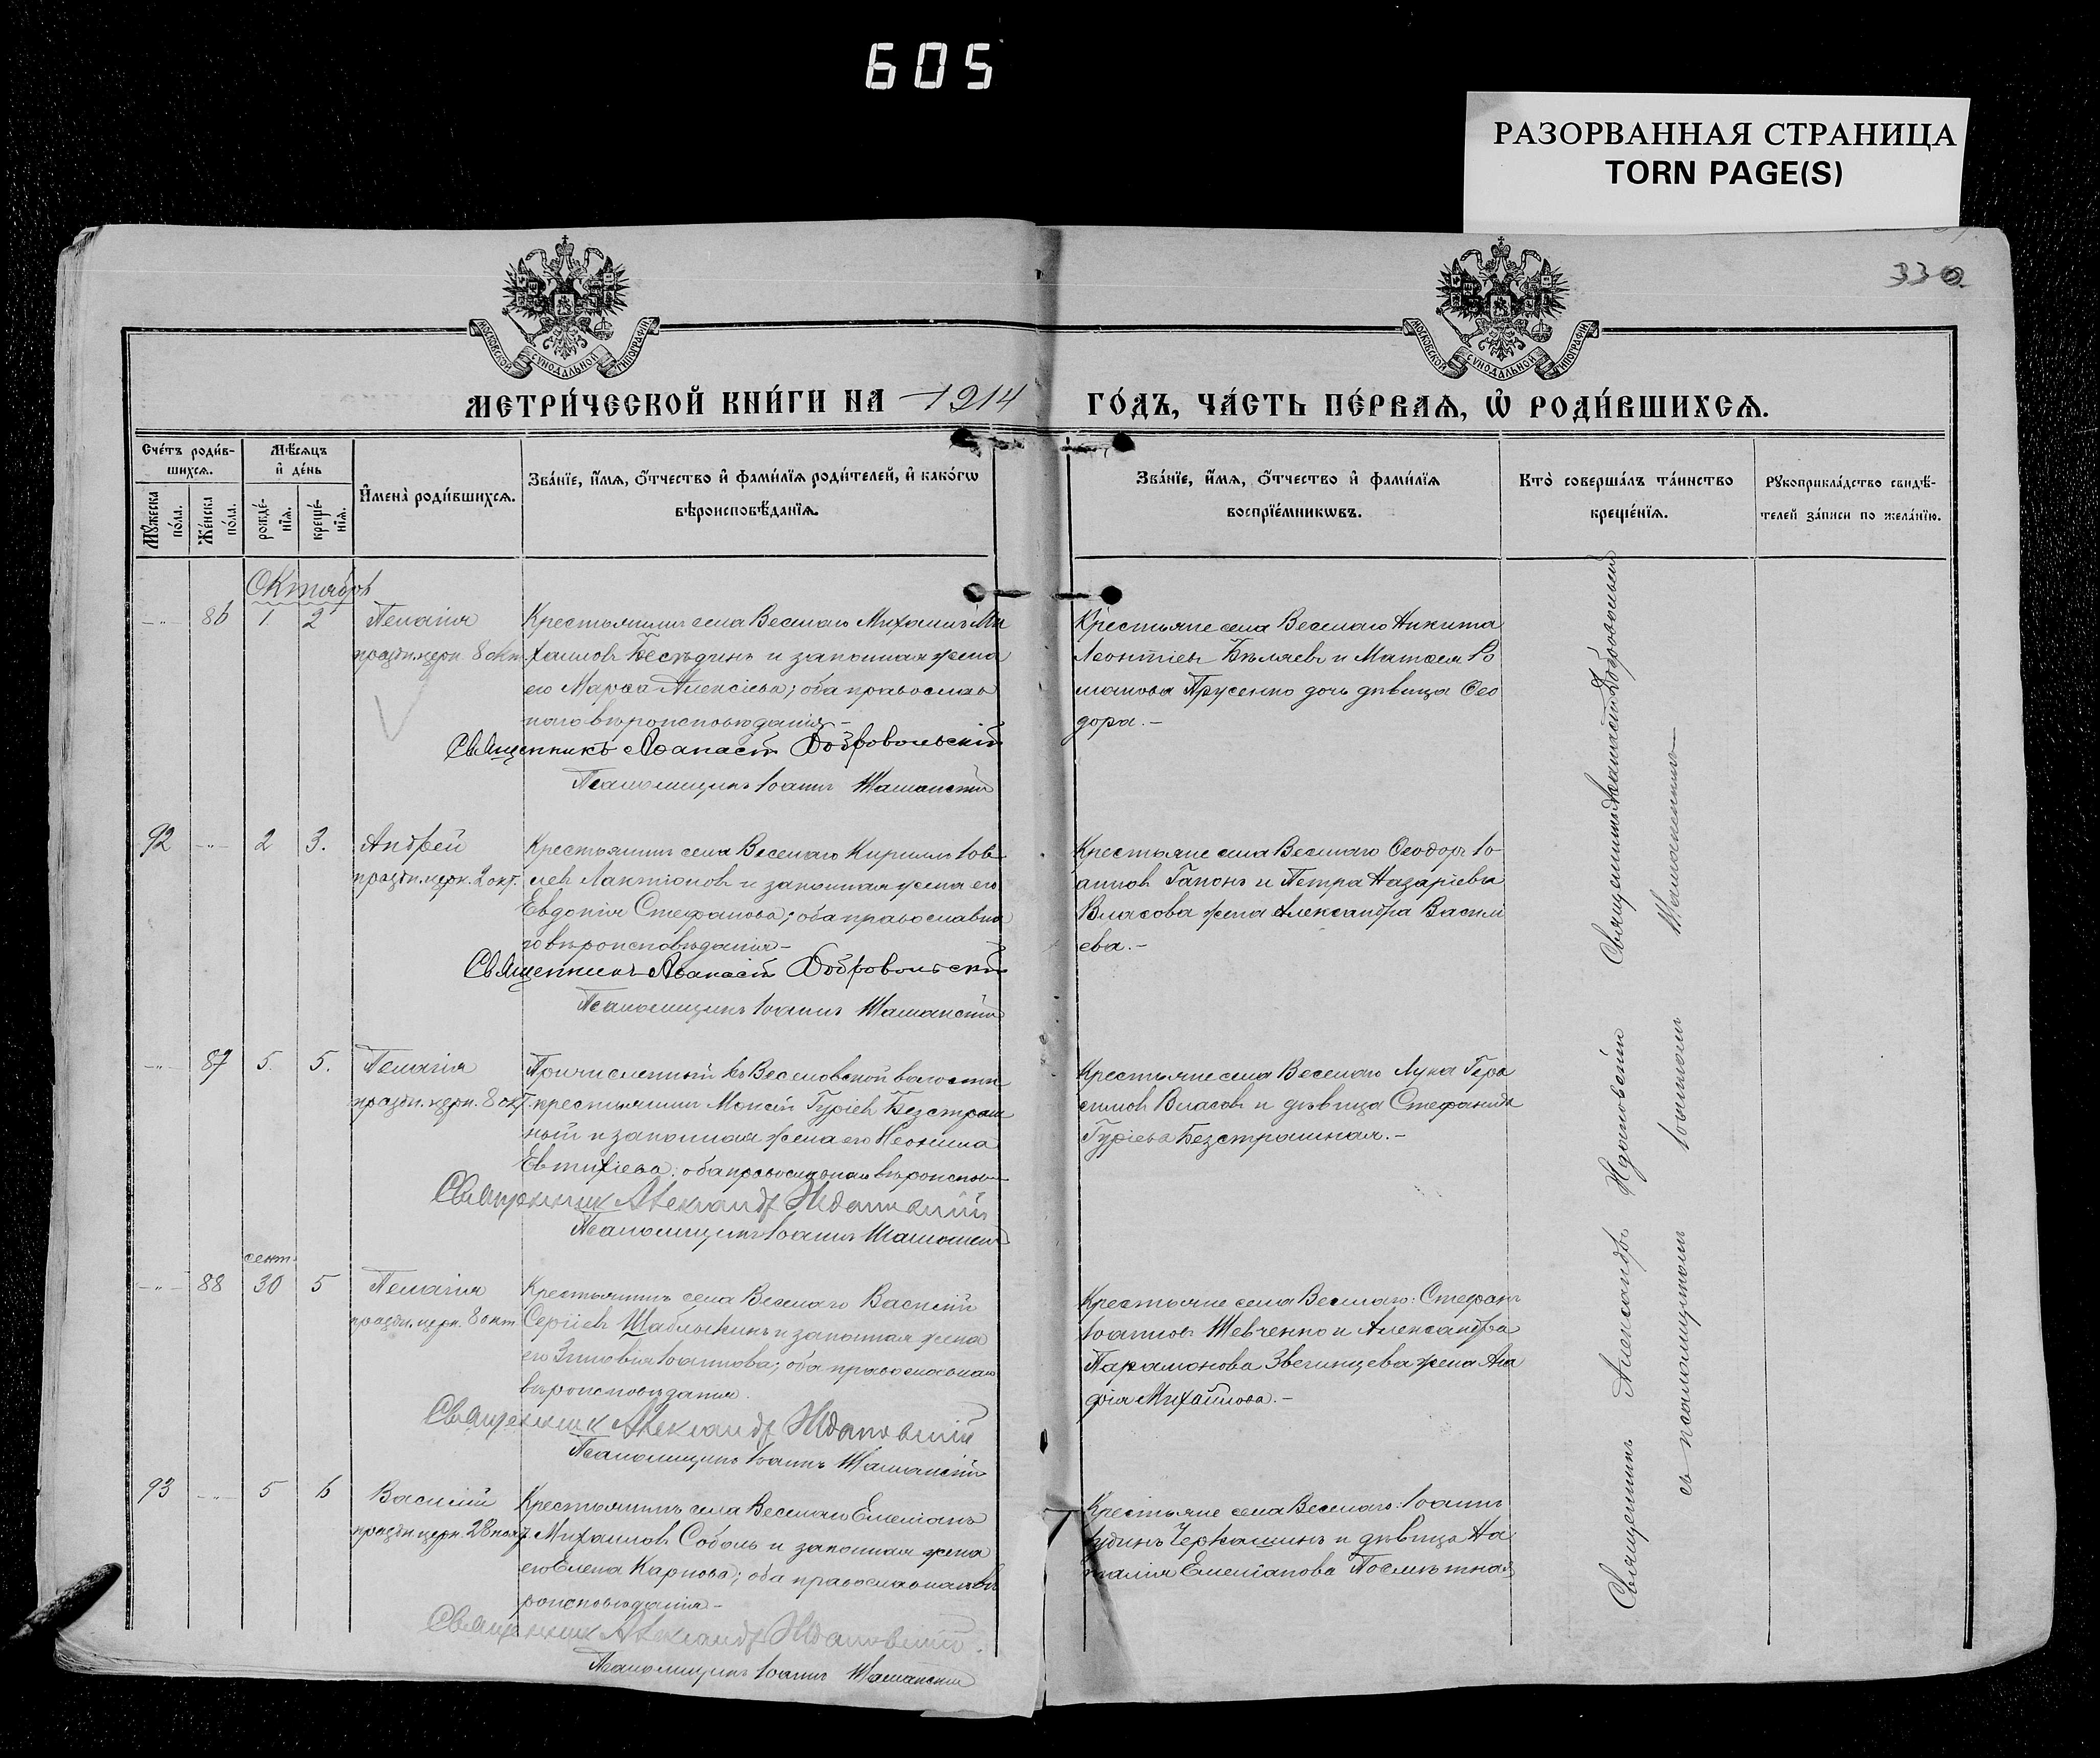 605
РАЗОРВАННАЯ СТРАНИЦА
TORN PAGE(S)
330
МОСКОВСКОЙ СѴНОДАЛЬНОЙ ТИПОГРАФІИ
МОСКОВСКОЙ СѴНОДАЛЬНОЙ ТИПОГРАФІИ
МЕТРИ́ЧЕСКОЙ КНИ́ГИ НА 1914 ГО́ДЪ, ЧА́СТЬ ПЕ́РВАѦ, Ѽ РОДИ́ВШИХСѦ.
Сче́тъ роди́в-
шихсѧ.
Мѣ́сѧцъ
и҆ де́нь
Мꙋ́жеска
по́ла.
Же́нска
по́ла.
рожде́-
нїѧ.
креще́-
нїѧ.
И҆мена̀ роди́вшихсѧ.
Зва́нїе, и҆́мѧ, ѻ҆́тчество и҆ фами́лїѧ роди́телей, и҆ како́гѡ
вѣроисповѣ́данїѧ.
Зва́нїе, и҆́мѧ, ѻ҆́тчество и҆ фами́лїѧ
воспрїе́мникѡвъ.
Кто̀ соверша́лъ та́инство
креще́нїѧ.
Рꙋкоприкла́дство свидѣ́-
телей за́писи по жела́нїю.
Октябрь
86 1 2 Пелагія
праздн. церк. 8 окт.
Крестьянинъ села Веселаго Михаилъ Ми
хаиловъ Бесѣдинъ и законная жена
его Марѳа Алексіева; оба православ
наго вѣроисповѣданія –
Священникъ Аѳанасій Добровольскій
Псаломщикъ Іоаннъ Шаманскій
Крестьяне села Веселаго Никита
Леонтіевъ Бѣляевъ и Матѳея Ро
манова Прусенко дочь дѣвица Ѳео
дора. –
92 2 3. Андрей
праздн. церк. 2 окт.
Крестьянинъ села Веселаго Кириллъ Іов
левъ Лактіоновъ и законная жена его
Евдокія Стефанова; оба православна
го вѣроисповѣданія –
Священникъ Аѳанасій Добровольскій
Псаломщикъ Іоаннъ Шаманскій
Крестьяне села Веселаго Ѳеодоръ Іо
анновъ Гапонъ и Петра Назаріева
Власова жена Александра Васили
ева. –
87 5. 5. Пелагія
праздн. церк. 8 окт.
Причисленный къ Веселовской волости
крестьянинъ Моисей Гуріевъ Безстраш
ный и законная жена его Неонила
Евтихіева; оба православнаго вѣроиспов
Священник Александр Ждановский
Псаломщикъ Іоаннъ Шаманскій
Крестьяне села Веселаго Лука Гера
симовъ Власовъ и дѣвица Стефанида
Гуріева Безстрашная. –
сент.
88 30 5 Пелагія
праздн. церк. 8 окт.
Крестьянинъ села Веселаго Василій
Сергіевъ Шаблыкинъ и законная жена
его Зиновія Іоаннова; оба православнаго
вѣроисповѣданія.
Священник Александр Ждановский
Псаломщикъ Іоаннъ Шаманскій
Крестьяне села Веселаго: Стефанъ
Іоанновъ Шевченко и Александра
Парамонова Звегинцева жена Ага
ѳія Михайлова. –
93 5 6 Василій
праздн. церк. 28
Крестьянинъ села Веселаго Емеліанъ
Михаиловъ Соболь и законная жена
его Елена Карпова; оба православнаго вѣ
роисповѣданія –
Священник Александр Ждановский.
Псаломщикъ Іоаннъ Шаманскій
Крестьяне села Веселаго: Іоаннъ
Черкашинъ и дѣвица На
талія Емеліанова Посмѣтная
Священникъ Аѳанасій Добровольскій
Священникъ Александръ Ждановскій
съ псаломщикомъ Іоанномъ Шаманскимъ –